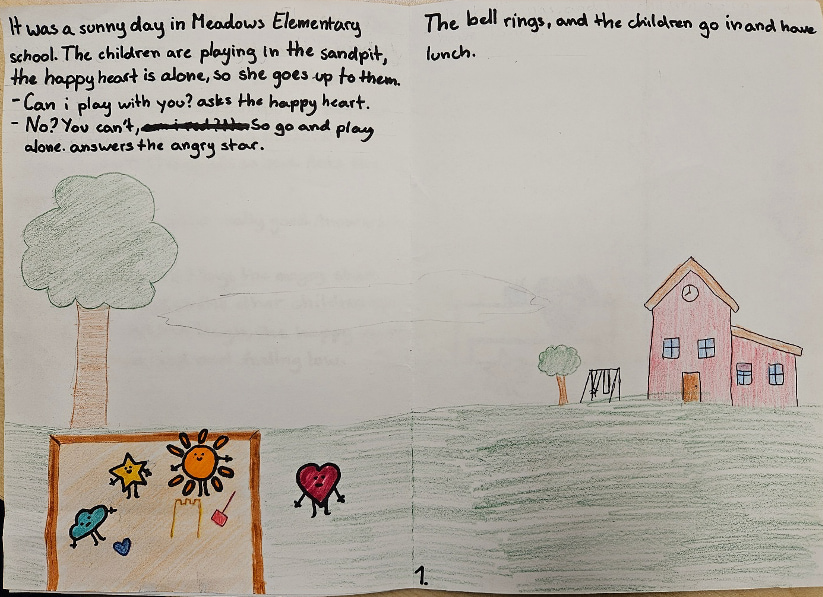 It was a sunny day in Meadows Elementary
school. The children are playing in the sandpit,
the happy heart is alone, so she goes up to them.
- Can i play with you? asks the happy heart.
- No? You can't, So go and play
alone. answers the angry star.
The bell rings, and the children go in and have
lunch.
1.